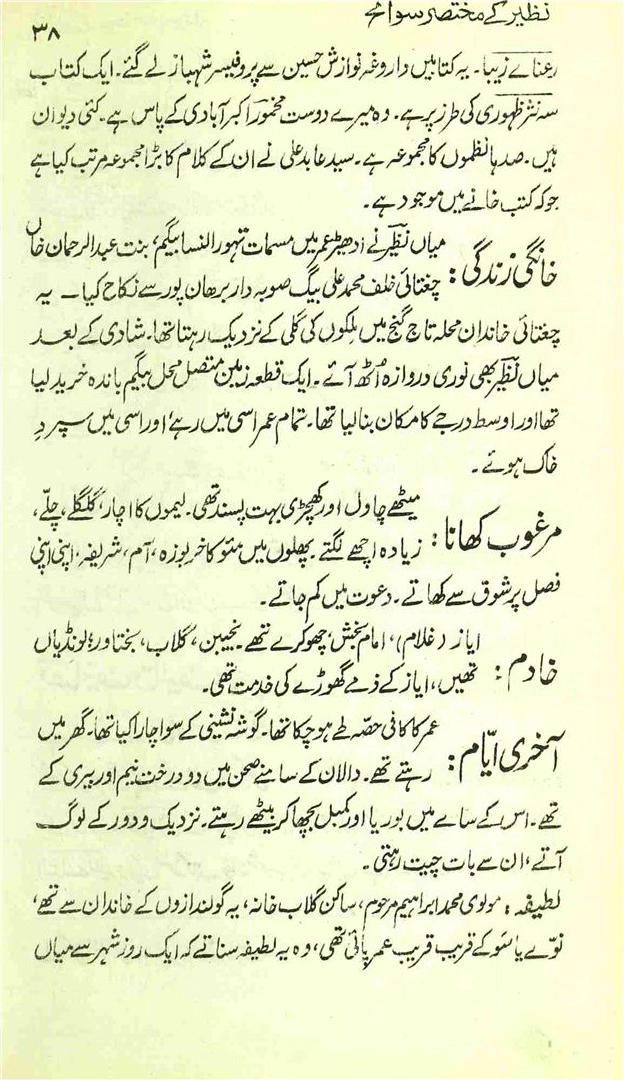 نظیر کے مختصر سوانح
۳۸
رعنائے زیبا۔ یہ کتابیں داروغہ نوازش حسین سے پروفیسر شہباز لے گئے۔ ایک کتاب
سہ نثر ظہوری کی طرز پر ہے۔ وہ میرے دوست مخمور اکبر آبادی کے پاس ہے۔ کئی دیوان
ہیں۔ صدہا نظموں کا مجموعہ ہے۔ سید عابد علی نے ان کے کلام کا بڑا مجموعہ مرتب کیا ہے
جو کہ کتب خانے میں موجود ہے۔
خانگی زندگی: میاں نظیر نے ادھیڑ عمر میں مسمات تہور النسا بیگم، بنت عبدالرحمان خاں
چغتائی خلف محمد علی بیگ صوبہ دار برھان پور سے نکاح کیا۔ یہ
چغتائی خاندان محلہ تاج گنج میں ملکوں کی گلی کے نزدیک رہتا تھا۔ شادی کے بعد
میاں نظیر بھی نوری دروازہ اُٹھ آئے۔ ایک قطعہ زمین متصل محل بیگم باندہ خرید لیا
تھا اور اوسط درجے کا مکان بنا لیا تھا۔ تمام عمر اسی میں رہے اور اسی میں سپردِ
خاک ہوئے۔
مرغوب کھانا: میٹھے چاول اور کھچڑی بہت پسند تھی۔ لیموں کا اچار، گلگلے، چلّے،
زیادہ اچھے لگتے۔ پھلوں میں مئو کا خربوزہ، آم، شریفہ، اپنی اپنی
فصل پر شوق سے کھاتے۔ دعوت میں کم جاتے۔
خادم: ایاز (غلام)، امام بخش، چھوکرے تھے۔ نجیبن، گلاب، بختاور؛ لونڈیاں
تھیں، ایاز کے ذمے گھوڑے کی خدمت تھی۔
آخری ایّام: عمر کا کافی حصّہ طے ہو چکا تھا۔ گوشہ نشینی کے سوا چارا کیا تھا۔ گھر میں
رہتے تھے۔ دالان کے سامنے صحن میں دو درخت نیم اور بیری کے
تھے۔ اس کے سائے میں بوریا اور کمبل بچھا کر بیٹھے رہتے۔ نزدیک و دور کے لوگ
آتے، ان سے بات چیت رہتی۔
لطیفہ: مولوی محمد ابراہیم مرحوم، ساکن گلاب خانہ، یہ گولندازوں کے خاندان سے تھے،
نوّے یا سَو کے قریب قریب عمر پائی تھی، وہ یہ لطیفہ سناتے کہ ایک روز شہر سے میاں